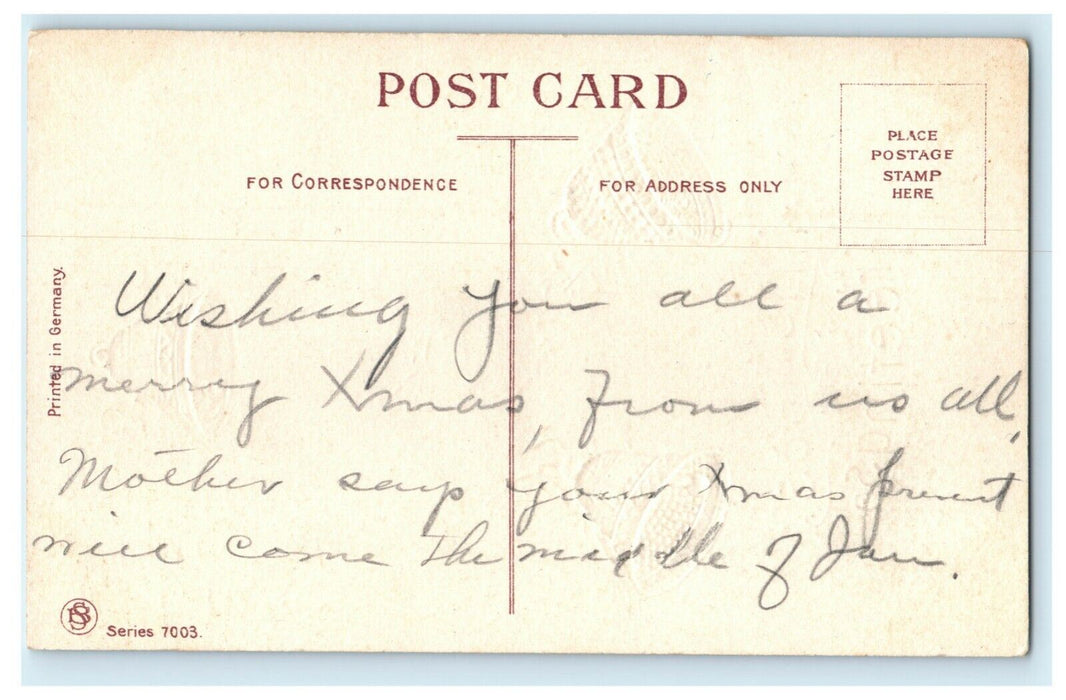 POST CARD
FOR CORRESPONDENCE
FOR ADDRESS ONLY
PLACE
POSTAGE
STAMP
HERE
Printed in Germany.
Wishing you all a
merry Xmas, from us all,
Mother says your Xmas present
will come the middle of Jan.
Series 7003.